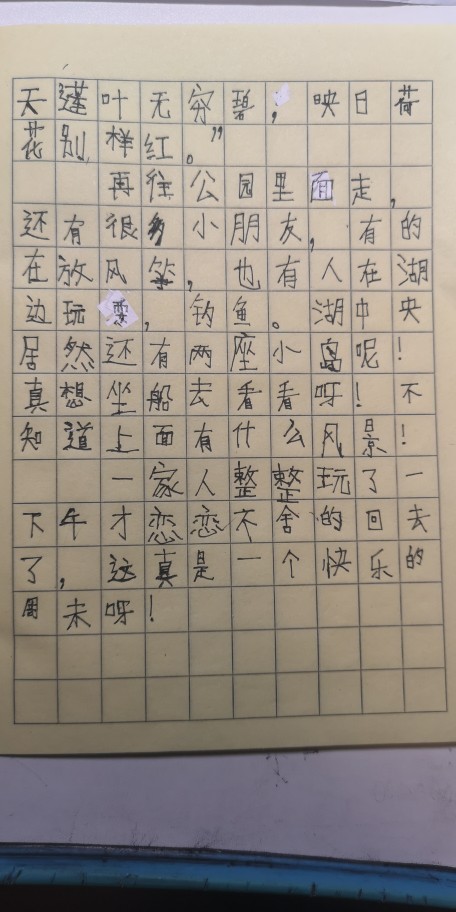 天蓬叶无穷碧，映日荷
花别样红。”
再往公园里面走，
还有很多小朋友，有的
在放风筝，也有人在湖
边玩耍，钓鱼。湖中央
居然还有两座小岛呢！
真想坐船去看看呀！不
知道上面有什么风景！
一家人整整玩了一
下午才恋恋不舍的回去
了，这真是一个快乐的
周未呀！